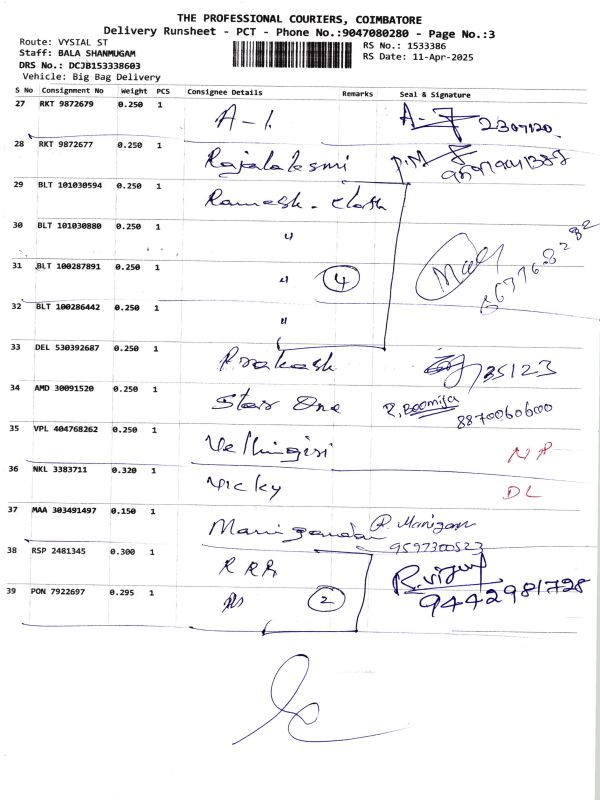 THE PROFESSIONAL COURIERS, COIMBATORE
Delivery Runsheet - PCT - Phone No.:9047080280 - Page No.:3
Route: VYSIAL ST
Staff: BALA SHANMUGAM
DRS No.: DCJB153338603
Vehicle: Big Bag Delivery
RS No.: 1533386
RS Date: 11-Apr-2025
S No Consignment No Weight PCS Consignee Details Remarks Seal & Signature
27 RKT 9872679 0.250 1 A-1.
28 RKT 9872677 0.250 1 Rajalakshmi
29 BLT 101030594 0.250 1 Ramesh - cloth
30 BLT 101030880 0.250 1 "
31 BLT 100287891 0.250 1 " 4
32 BLT 100286442 0.250 1 "
33 DEL 530392687 0.250 1 Prakash 35123
34 AMD 30091520 0.250 1 Star One R. Boomija
8870060600
35 VPL 404768262 0.250 1 Vellingiri NP
36 NKL 3383711 0.320 1 Vicky DL
37 MAA 303491497 0.150 1 Manigandan P. Manigan
9597300523
38 RSP 2481345 0.300 1 RRR
39 PON 7922697 0.295 1 2 9442981728